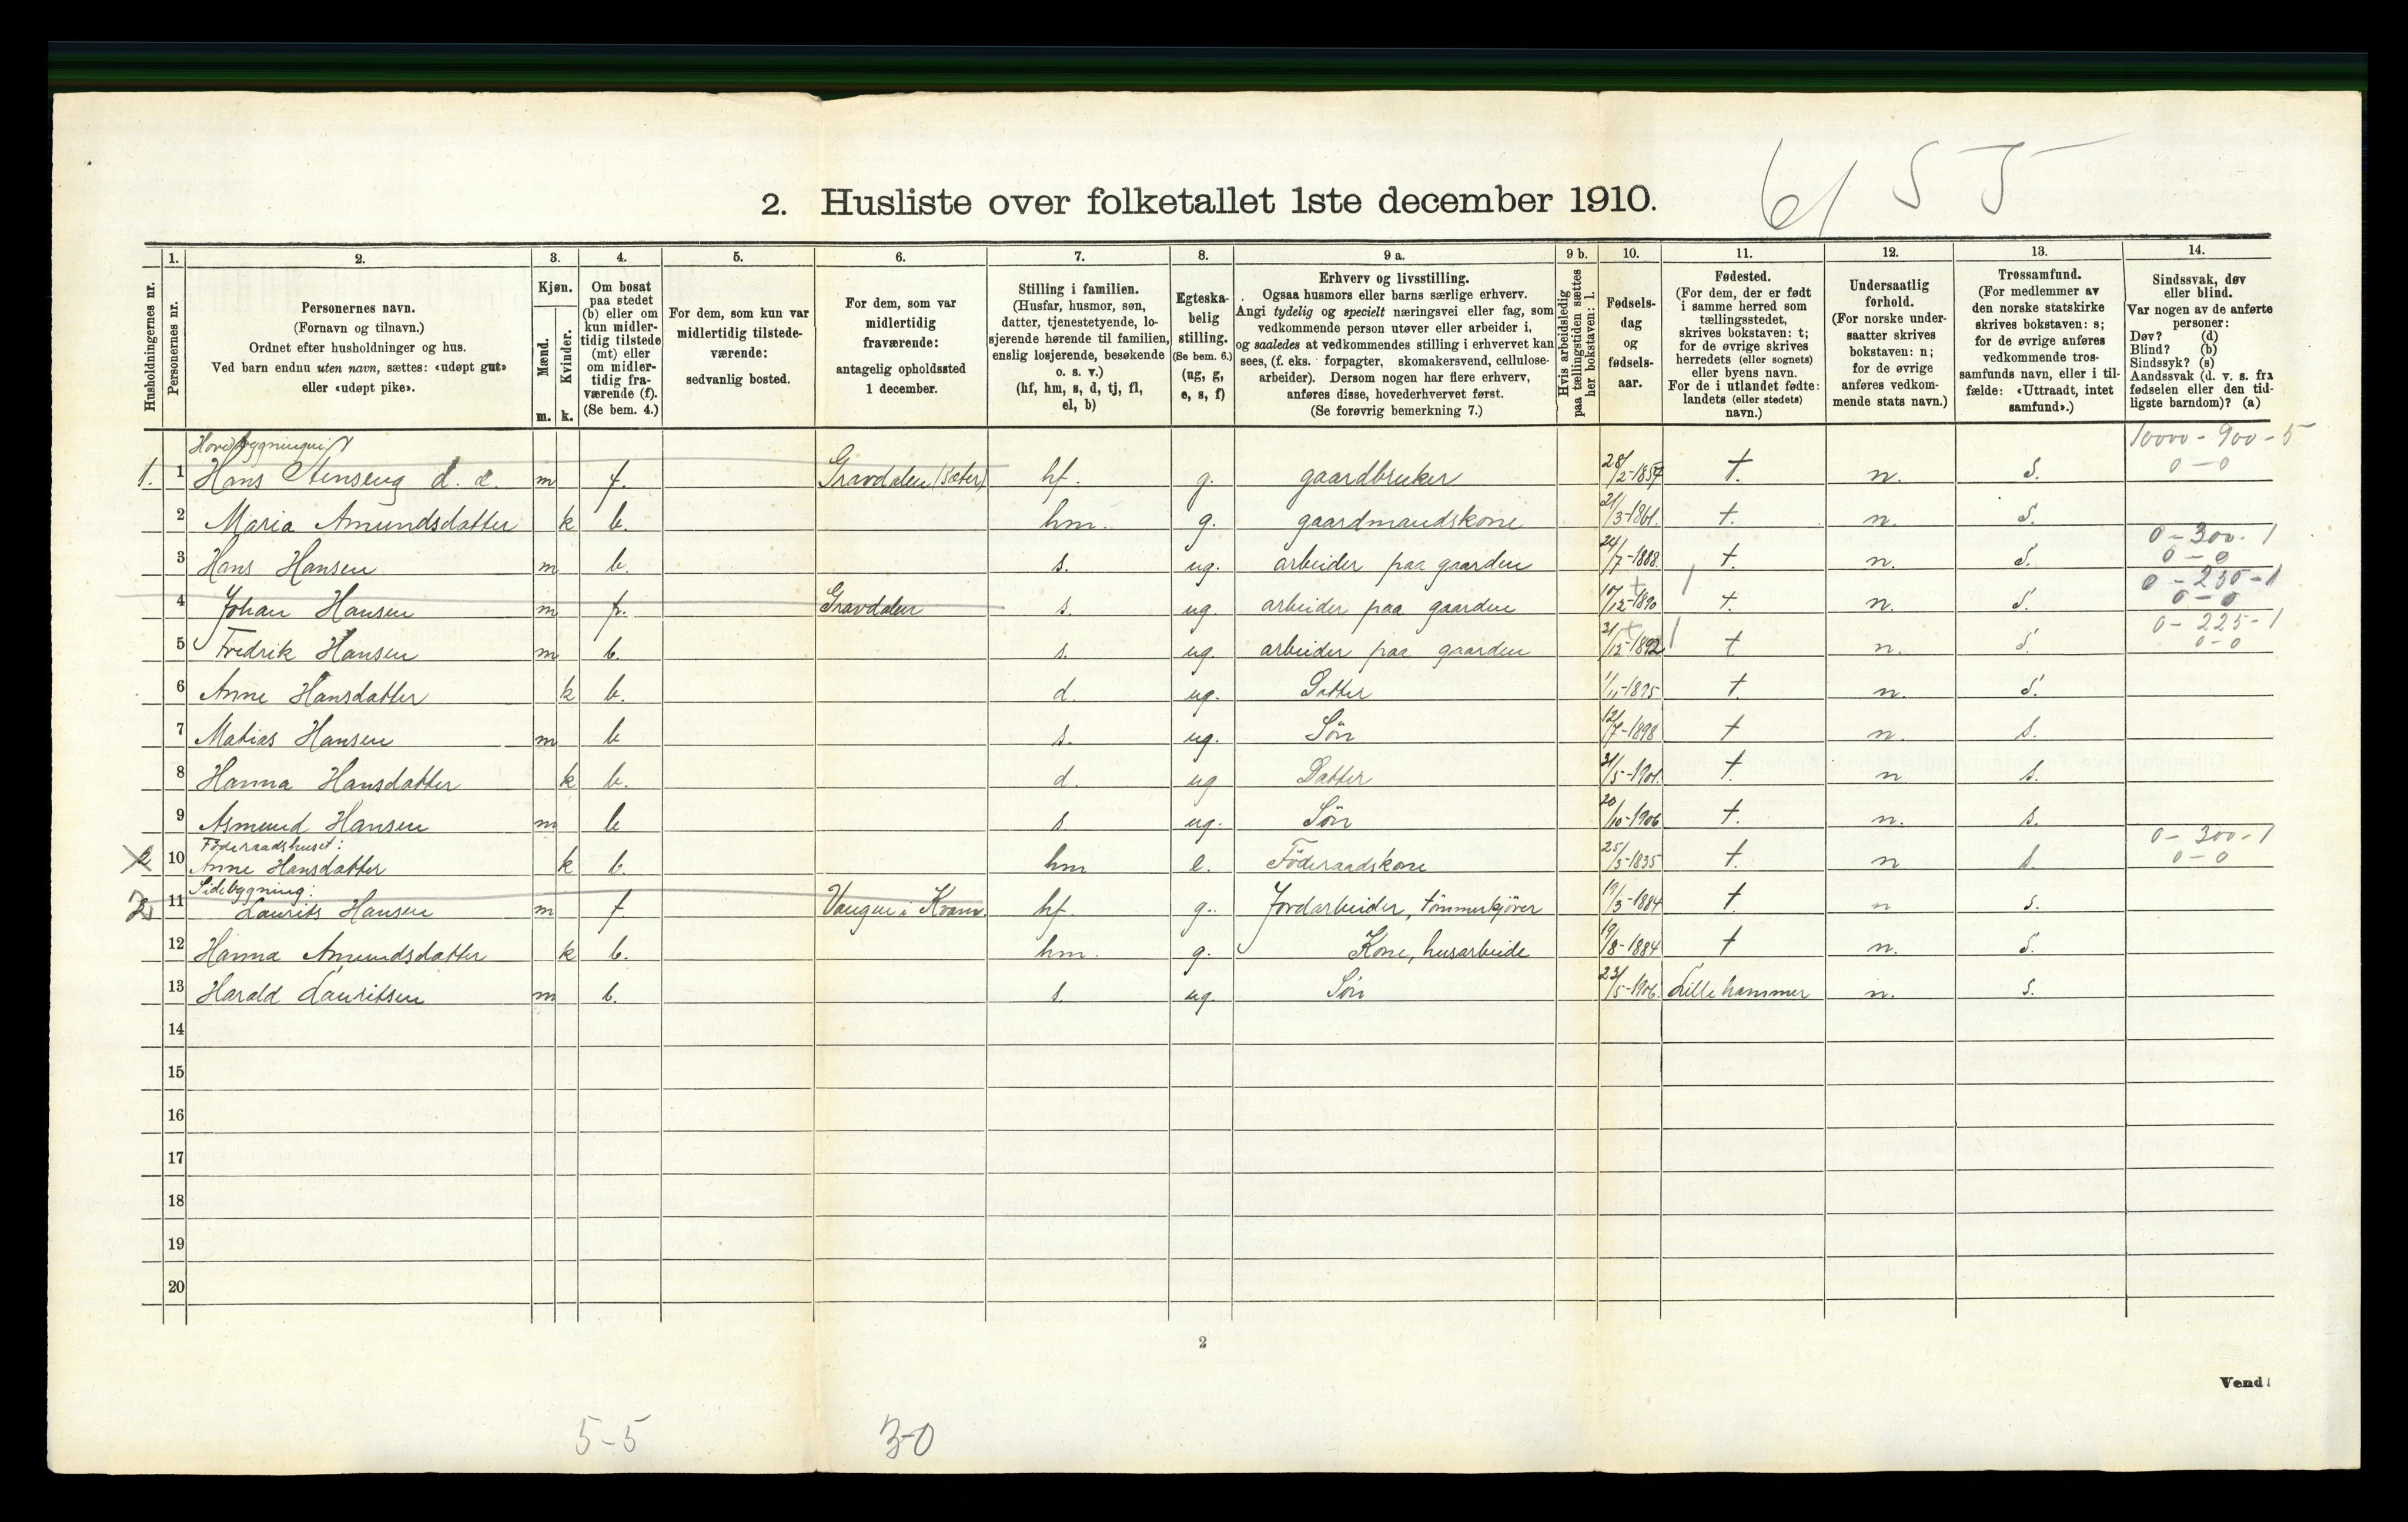 6/ 5 5
2. Husliste over folketallet 1ste december 1910.
Husholdningernes nr.
1.
Personernes nr.
2.
Personernes navn.
(Fornavn og tilnavn.)
Ordnet efter husholdninger og hus.
Ved barn endnu uten navn, sættes: «udøpt gut»
eller «udøpt pike».
3.
Kjøn.
Mænd.
m.
Kvinder.
k.
4.
Om bosat
paa stedet
(b) eller om
kun midler-
tidig tilstede
(mt) eller
om midler-
tidig fra-
værende (f).
(Se bem. 4.)
5.
For dem, som kun var
midlertidig tilstede-
værende:
sedvanlig bosted.
6.
For dem, som var
midlertidig
fraværende:
antagelig opholdssted
1 december.
7.
Stilling i familien.
(Husfar, husmor, søn,
datter, tjenestetyende, lo-
sjerende hørende til familien,
enslig losjerende, besøkende
o. s. v.)
(hf, hm, s, d, tj, fl,
el, b)
8.
Egteska-
belig
stilling.
(Se bem. 6.)
(ug, g,
e, s, f)
9 a.
Erhverv og livsstilling.
Ogsaa husmors eller barns særlige erhverv.
Angi tydelig og specielt næringsvei eller fag, som
vedkommende person utøver eller arbeider i,
og saaledes at vedkommendes stilling i erhvervet kan
sees, (f. eks. forpagter, skomakersvend, cellulose-
arbeider). Dersom nogen har flere erhverv,
anføres disse, hovederhvervet først.
(Se forøvrig bemerkning 7.)
9 b.
Hvis arbeidsledig
paa tællingstiden sættes
her bokstaven: l.
10.
Fødsels-
dag
og
fødsels-
aar.
11.
Fødested.
(For dem, der er født
i samme herred som
tællingsstedet,
skrives bokstaven: t;
for de øvrige skrives
herredets (eller sognets)
eller byens navn.
For de i utlandet fødte:
landets (eller stedets)
navn.)
12.
Undersaatlig
forhold.
(For norske under-
saatter skrives
bokstaven: n;
for de øvrige
anføres vedkom-
mende stats navn.)
13.
Trossamfund.
(For medlemmer av
den norske statskirke
skrives bokstaven: s;
for de øvrige anføres
vedkommende tros-
samfunds navn, eller i til-
fælde: «Uttraadt, intet
samfund».)
14.
Sindssvak, døv
eller blind.
Var nogen av de anførte
personer:
Døv? (d)
Blind? (b)
Sindssyk? (s)
Aandssvak (d. v. s. fra
fødselen eller den tid-
ligste barndom)? (a)
10000 - 900 - 5
1. 1 Hans Stenseng d. æ. m f. Gravdalen (Sæter) hf. g. gaardbruker 28/2-1857 t. n. S. 0-0
2 Maria Amundsdatter k b. hm. g. gaardmandskone 21/3-1861. t. n. S.
0-300-1
3 Hans Hansen m b. s. ug. arbeider paa gaarden 24/7-1888. t. n. S. 0-0
0-230-1
4 Johan Hansen m f. Gravdalen s ug. arbeider paa gaarden 10/12-1890 t. n. S. 0-0
0-225-1
5 Fredrik Hansen m b. s. ug. arbeider paa gaarden 31/12-1892 t n. S. 0-0
6 Anne Hansdatter k b. d. ug. Datter 1/11-1895 t. n. S.
7 Matias Hansen m b s. ug. Sön 12/7-1898 t n. s.
8 Hanna Hansdatter k b. d. ug Datter 31/5-1901. t. n s.
9 Asmund Hansen m b s. ug. Sön 20/10-1906 t. n. s.
Föderaadshuset:
0-300-1
2 10 Anne Hansdatter k b. hm e. Föderaadskone 25/5-1835 t. n s. 0-0
Sidebygning:
2 11 Laurits Hansen m f Vangen i Kvam. hf. g. Jordarbeider, tömmerkjörer 19/3-1884 t. n s.
12 Hanna Amundsdatter k b. hm. g. Kone, husarbeide 19/8-1884 t n. S.
13 Harald Lauritsen m b. s. ug. Sön 23/5-1906. Lillehammer n. s.
14
15
16
17
18
19
20
2
Vend!
5-5 3-0